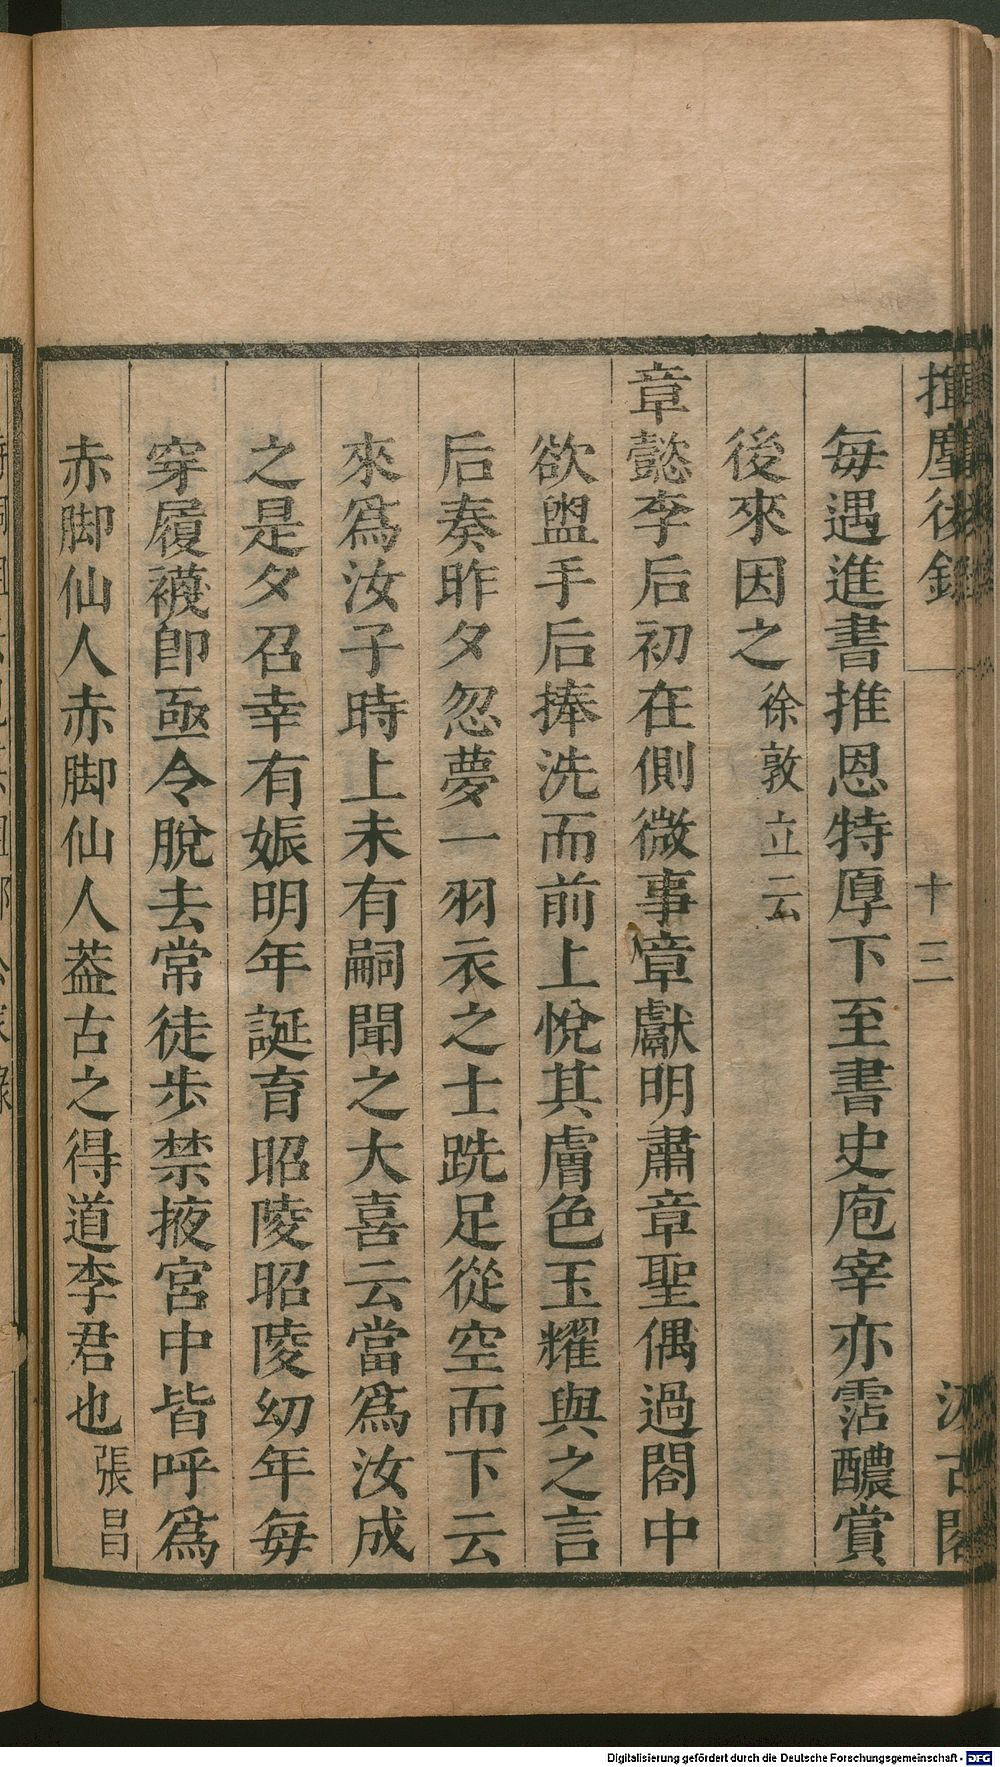 揮麈後錄 十三 汲古閣
每遇進書推恩特厚下至書史庖宰亦霑醲賞
後來因之徐敦立云
章懿李后初在側微事章獻明肅章聖偶過閤中
欲盥手后捧洗而前上悅其膚色玉耀與之言
后奏昨夕忽夢一羽衣之士跣足從空而下云
來爲汝子時上未有嗣聞之大喜云當爲汝成
之是夕召幸有娠明年誕育昭陵昭陵幼年每
穿履襪卽亟令脫去常徒步禁掖宮中皆呼爲
赤脚仙人赤脚仙人葢古之得道李君也張昌
Digitalisierung gefördert durch die Deutsche Forschungsgemeinschaft - DFG